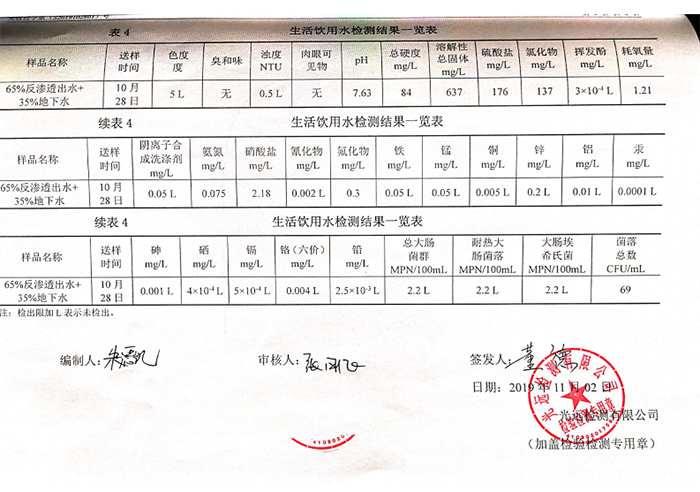 表 4 生活饮用水检测结果一览表
样品名称 送样时间 色度 度 臭和味 浊度 NTU 肉眼可见物 pH 总硬度 mg/L 溶解性总固体 mg/L 硫酸盐 mg/L 氯化物 mg/L 挥发酚 mg/L 耗氧量 mg/L
65%反渗透出水+35%地下水 10月28日 5 L 无 0.5 L 无 7.63 84 637 176 137 3×10⁻⁴ L 1.21
续表 4 生活饮用水检测结果一览表
样品名称 送样时间 阴离子合成洗涤剂 mg/L 氨氮 mg/L 硝酸盐 mg/L 氰化物 mg/L 氟化物 mg/L 铁 mg/L 锰 mg/L 铜 mg/L 锌 mg/L 铝 mg/L 汞 mg/L
65%反渗透出水+35%地下水 10月28日 0.05 L 0.075 2.18 0.002 L 0.3 0.05 L 0.05 L 0.005 L 0.2 L 0.01 L 0.0001 L
续表 4 生活饮用水检测结果一览表
样品名称 送样时间 砷 mg/L 硒 mg/L 镉 mg/L 铬（六价） mg/L 铅 mg/L 总大肠菌群 MPN/100mL 耐热大肠菌落 MPN/100mL 大肠埃希氏菌 MPN/100mL 菌落总数 CFU/mL
65%反渗透出水+35%地下水 10月28日 0.001 L 4×10⁻⁴ L 5×10⁻⁴ L 0.004 L 2.5×10⁻³ L 2.2 L 2.2 L 2.2 L 69
注：检出限加 L 表示未检出。
编制人： 审核人： 签发人：
日期：2019 年 11 月 02 日
光远检测有限公司
（加盖检验检测专用章）